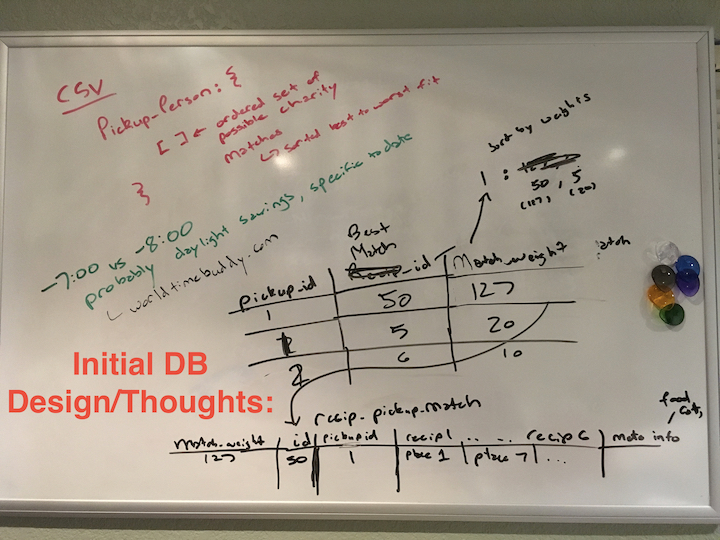 CSV
Pickup-Person: {
[ ] ← ordered set of
possible charity
matches
↳ sorted best to worst fit
}
-7:00 vs -8:00
probably daylight savings, specific to date
↳ worldtimebuddy.com
Sort by weights
1 :
50 , 5
(127) (20)
Best
Match
pickup_id | _id | Match_weight
1 | 50 | 127
1 | 5 | 20
2 | 6 | 10
Initial DB
Design/Thoughts:
recip_pickup_match
food
match_weight | id | pickupid | recip1 .. .. recip6 | info
127 | 50 | 1 | place 1 | place 7 | ...